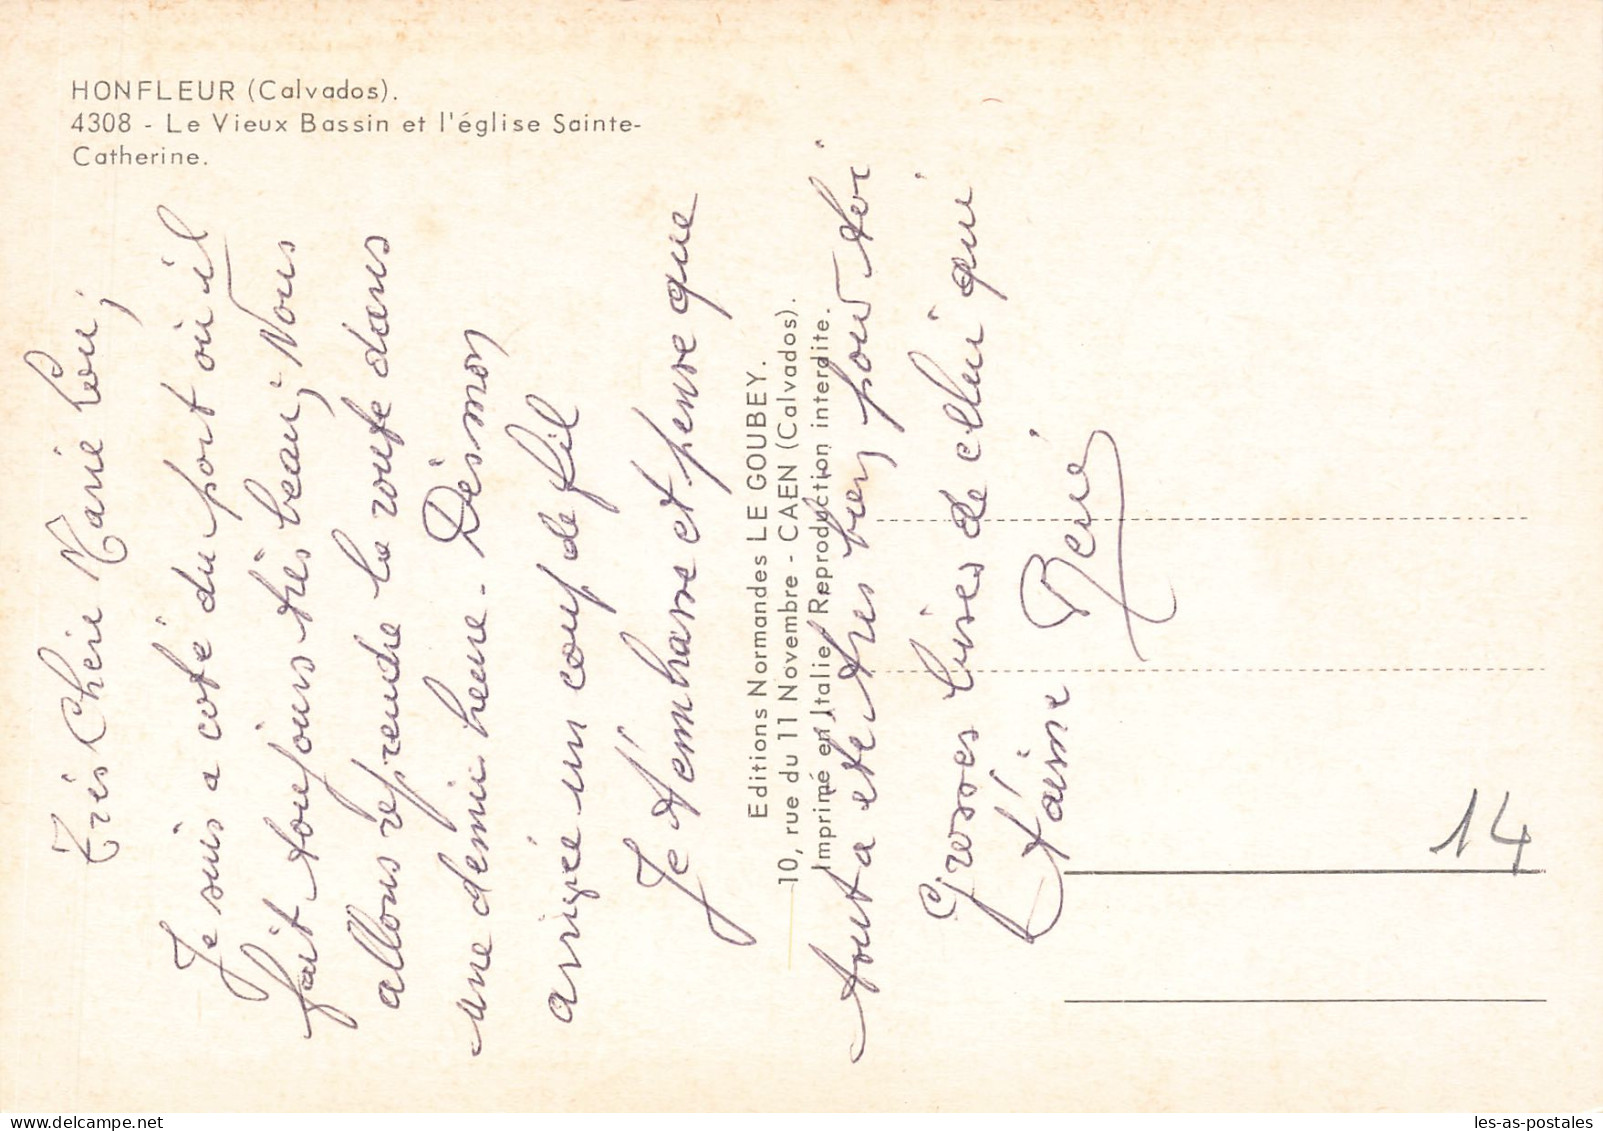 HONFLEUR (Calvados).
4308 - Le Vieux Bassin et l'église Sainte-
Catherine.
Très Chère Marie Lou,
Je suis a coté du port où il
fait toujours très beau, Nous
allons reprendre la route dans
une demie heure. Dès mon
arrivée un coup de fil
Je t'embrasse et pense que
tout a été très bien pour toi
Grosses bises de celui qui
t'aime
René
Editions Normandes LE GOUBEY.
10, rue du 11 Novembre - CAEN (Calvados).
Imprimé en Italie Reproduction interdite.
14
delcampe.net
les-as-postales